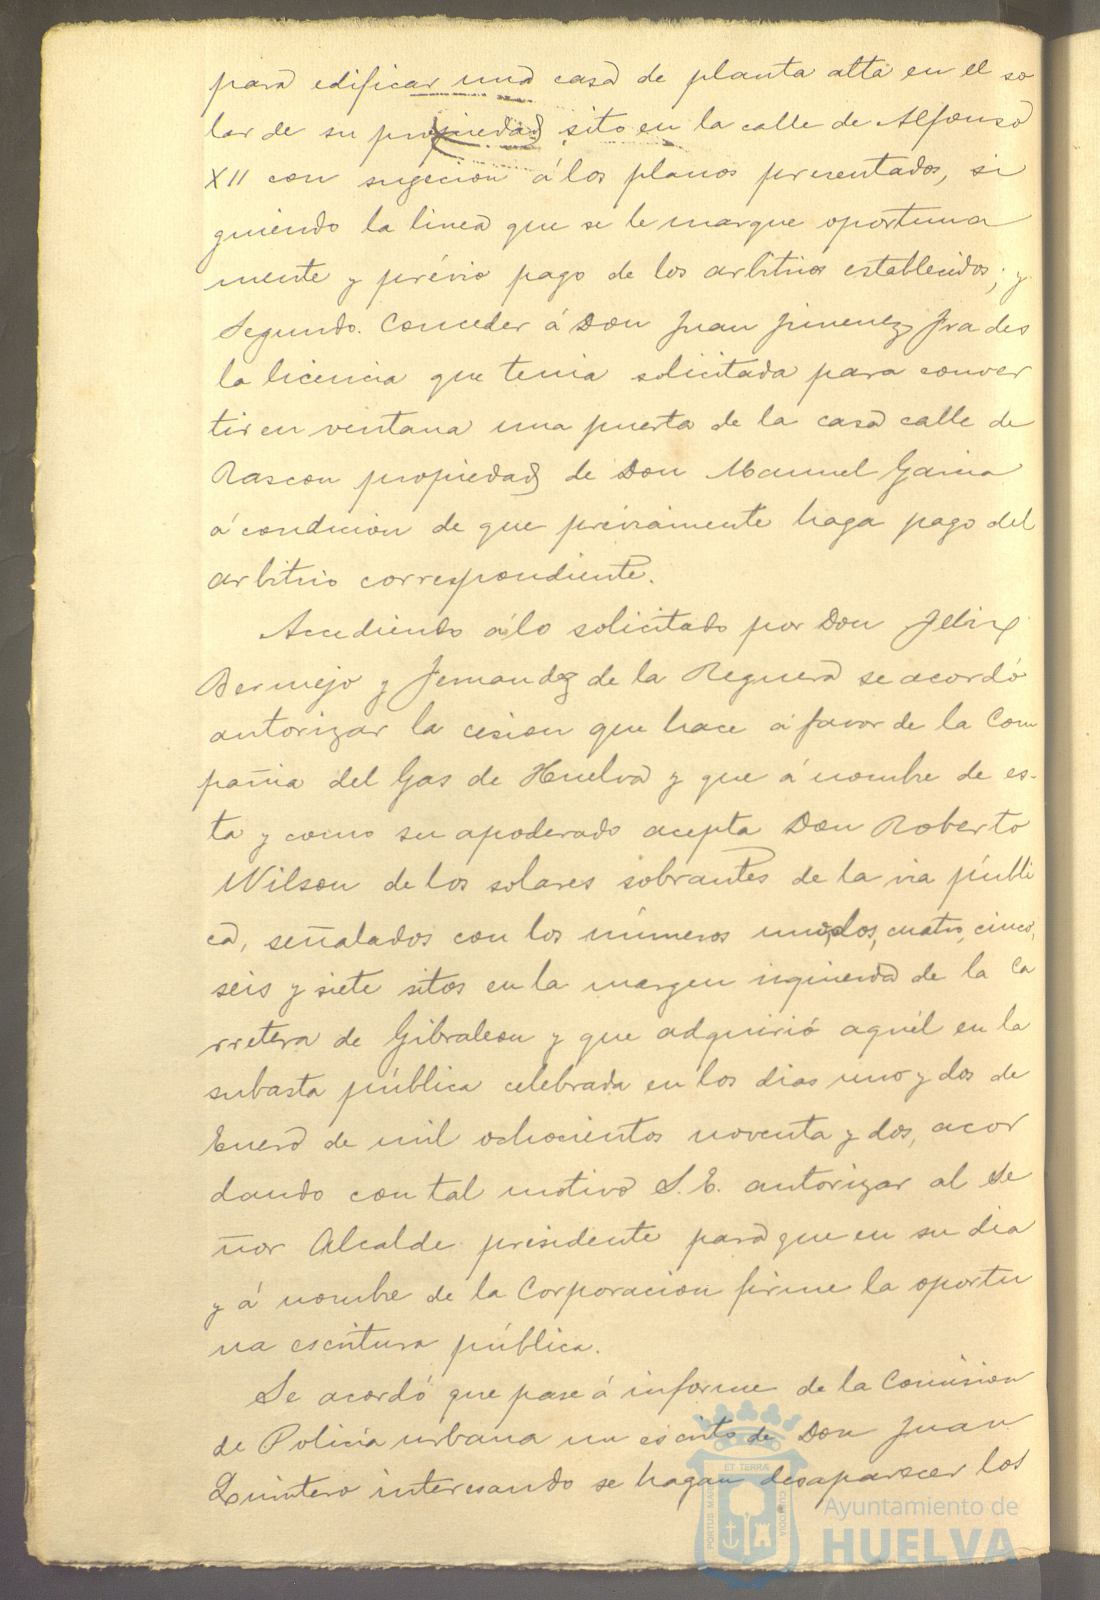 para edificar una casa de planta alta en el so
lar de su propiedad sito en la calle de Alfonso
XII con sugecion á los planos presentados, si
guiendo la linea que se le marque oportuna
mente y prévio pago de los arbitrios establecidos; y
Segundo. Conceder á Don Juan Jimenez Frades
la licencia que tenia solicitada para conver
tir en ventana una puerta de la casa calle de
Rascon propiedad de Don Manuel Garcia
á condicion de que préviamente haga pago del
arbitrio correspondiente.
Accediendo á lo solicitado por Don Felix
Bermejo y Fernandez de la Reguera se acordó
autorizar la cesion que hace á favor de la Com
pañia del Gas de Huelva y que á nombre de es-
ta y como su apoderado acepta Don Roberto
Wilson de los solares sobrantes de la via públi
ca, señalados con los números uno, dos, cuatro, cinco,
seis y siete sitos en la margen izquierda de la Ca
rretera de Gibraleon y que adquirió aquél en la
subasta pública celebrada en los dias uno y dos de
Enero de mil ochocientos noventa y dos, acor
dando con tal motivo S. E. autorizar al Se
ñor Alcalde presidente para que en su dia
y á nombre de la Corporacion firme la oportu
na escritura pública.
Se acordó que pase á informe de la Comision
de Policia urbana un escrito de Don Juan
Quintero interesando se hagan desaparecer los
ET TERRÆ
PORTUS MARIS
CUSTODIA
Ayuntamiento de
HUELVA